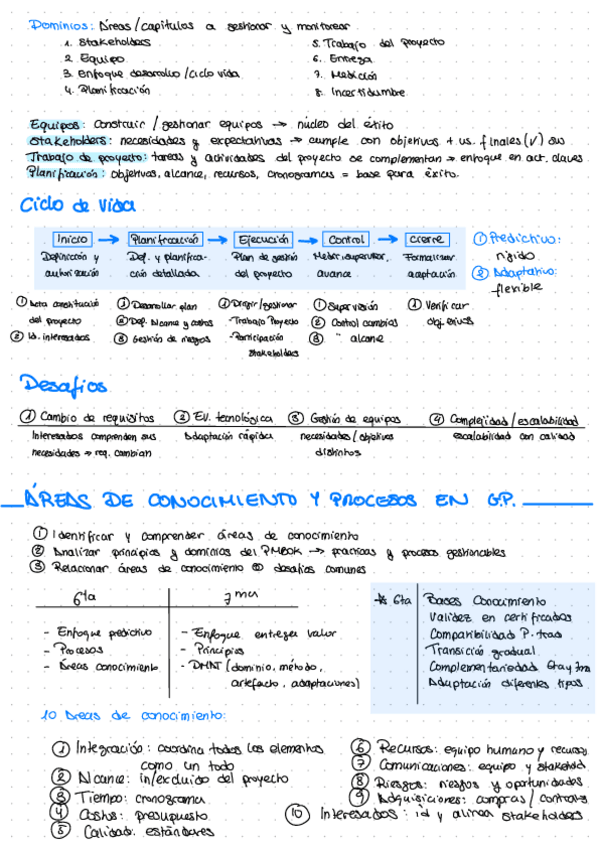 Dominios: Áreas/capítulos a gestionar y monitorear
1. Stakeholders
2. Equipo
3. Enfoque desarrollo/ciclo vida
4. Planificación
5. Trabajo del proyecto
6. Entrega
7. Medición
8. Incertidumbre
Equipos: Construir / gestionar equipos → núcleo del éxito
Stakeholders: necesidades y expectativas → cumple con objetivos + us. finales (v) sus
Trabajo de proyecto: tareas y actividades del proyecto se complementan → enfoque en act. claves
Planificación: objetivos, alcance, recursos, cronogramas = base para éxito.
Ciclo de vida
Inicio → Planificación → Ejecución → Control → cierre
Definición y autorización
Def. y planificación detallada
Plan de gestión del proyecto
Medir, supervisar, avance
Formalizar aceptación
① Predictivo: rígido
② Adaptativo: flexible
① Acta constitución del proyecto
② Id. interesados
① Desarrollar plan
② Def. Alcance y costos
③ Gestión de riesgos
① Dirigir/gestionar
-Trabajo Proyecto
-Participación stakeholders
① Supervisión
② Control cambios
③ " alcance
① Verificar obj.
Desafíos
① Cambio de requisitos
Interesados comprenden sus
necesidades → req. cambian
② Ev. tecnológica
Adaptación rápida
③ Gestión de equipos
necesidades/objetivos
distintos
④ Complejidad/escalabilidad
escalabilidad con calidad
ÁREAS DE CONOCIMIENTO Y PROCESOS EN G.P.
① Identificar y comprender áreas de conocimiento
② Analizar principios y dominios del PMBOK → prácticas y procesos gestionables
③ Relacionar áreas de conocimiento desafíos comunes
6ta
- Enfoque predictivo
- Procesos
- Áreas conocimiento
7ma
- Enfoque entregar valor
- Principios
- DMAT (dominio, método,
artefacto, adaptaciones)
* 6ta
Bases Conocimiento
Validez en certificados
Compatibilidad P. trad
Transición gradual
Complementariedad 6ta y 7ma
Adaptación diferentes tipos
10 Áreas de conocimiento:
① Integración: coordina todos los elementos
como un todo
② Alcance: in/excluido del proyecto
③ Tiempo: cronograma
④ Costos: presupuesto
⑤ Calidad: estándares
⑥ Recursos: equipo humano y recursos
⑦ Comunicaciones: equipo y stakehold
⑧ Riesgos: riesgos y oportunidades
⑨ Adquisiciones: compras / contratos
⑩ Interesados: id y alinea stakeholders